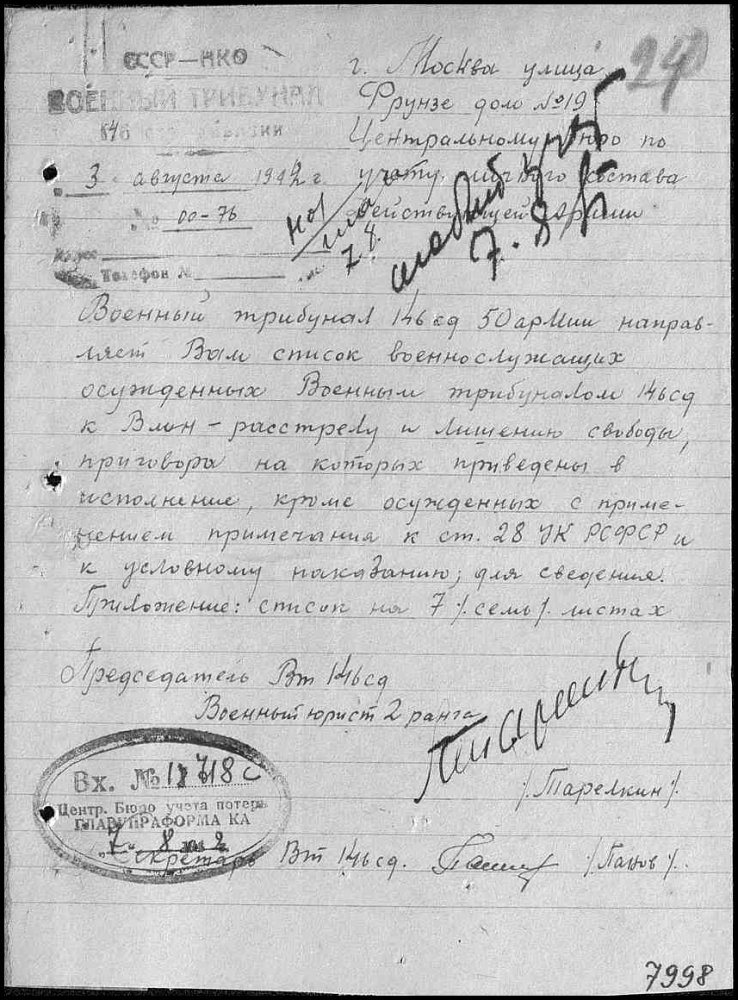 СССР—НКО
ВОЕННЫЙ ТРИБУНАЛ
146
3 августа 1942 г.
№ 00-76
Телефон №
г. Москва улица
Фрунзе дом №19
Центральному бюро по
учету личного состава
действующей армии
24
7.8
7.8
Военный трибунал 146 сд 50 армии направ-
ляет Вам список военнослужащих
осужденных Военным трибуналом 146 сд
к Вмн – расстрелу и лишению свободы,
приговора на которых приведены в
исполнение, кроме осужденных с приме-
нением примечания к ст. 28 УК РСФСР и
к условному наказанию; для сведения.
Приложение: список на 7 /.семь/. листах
Председатель Вт 146 сд
Военный юрист 2 ранга
/.Тарелкин/.
Вх. №
Центр. Бюро учета потерь
ГЛАВУПРАФОРМА КА
7 8
Секретарь Вт 146 сд. /.Панов/.
7998